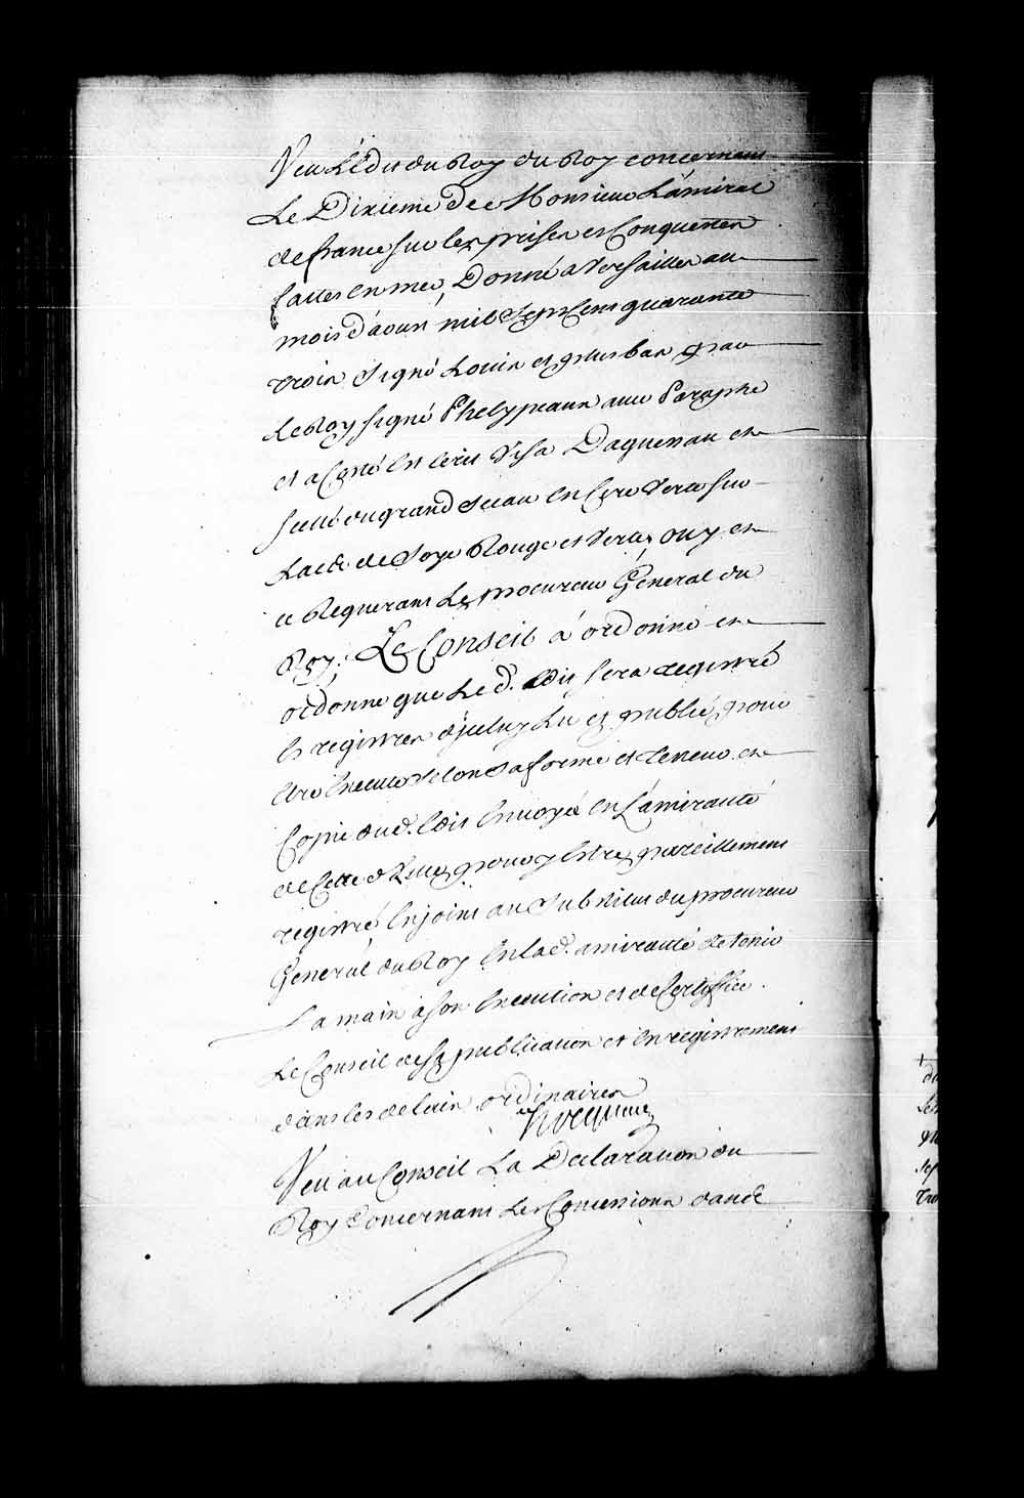 Veu L'Edit du Roy du Roy concernant
Le Dixieme de Monsieur L'amiral
de france sur les prises et Conquestes
faittes en mer, Donné a Versailles au
mois d'avril mil Sept Cens quarante
trois Signé Louis et plus bas par
Le Roy signé Phelypeaux avec Paraphe
et a Costé Est Ecrit Visa Daguessau et
scellé du grand Sceau en Cire Verte sur
Lacds de Soye Rouge et Verte, ouy et
ce Requerant Le procureur General du
Roy; Le Conseil a ordonné et
ordonne que Le d. Edit sera registré
Es registres d'jceluy Lu et publié, pour
Etre Executé Selon Sa forme et Teneur et
Copie dud. Edit Envoyé En L'amirauté
de Cette d. Ville pour y Estre pareillement
registré Enjoint au Substitut du procureur
General du Roy En lad. amirauté de tenir
La main a son Execution et de Certiffier
Le Conseil de sa publication et Enregistrement
dans les delais ordinaires
Veu au Conseil La Declaration du
Roy Concernant Les Concessions dans